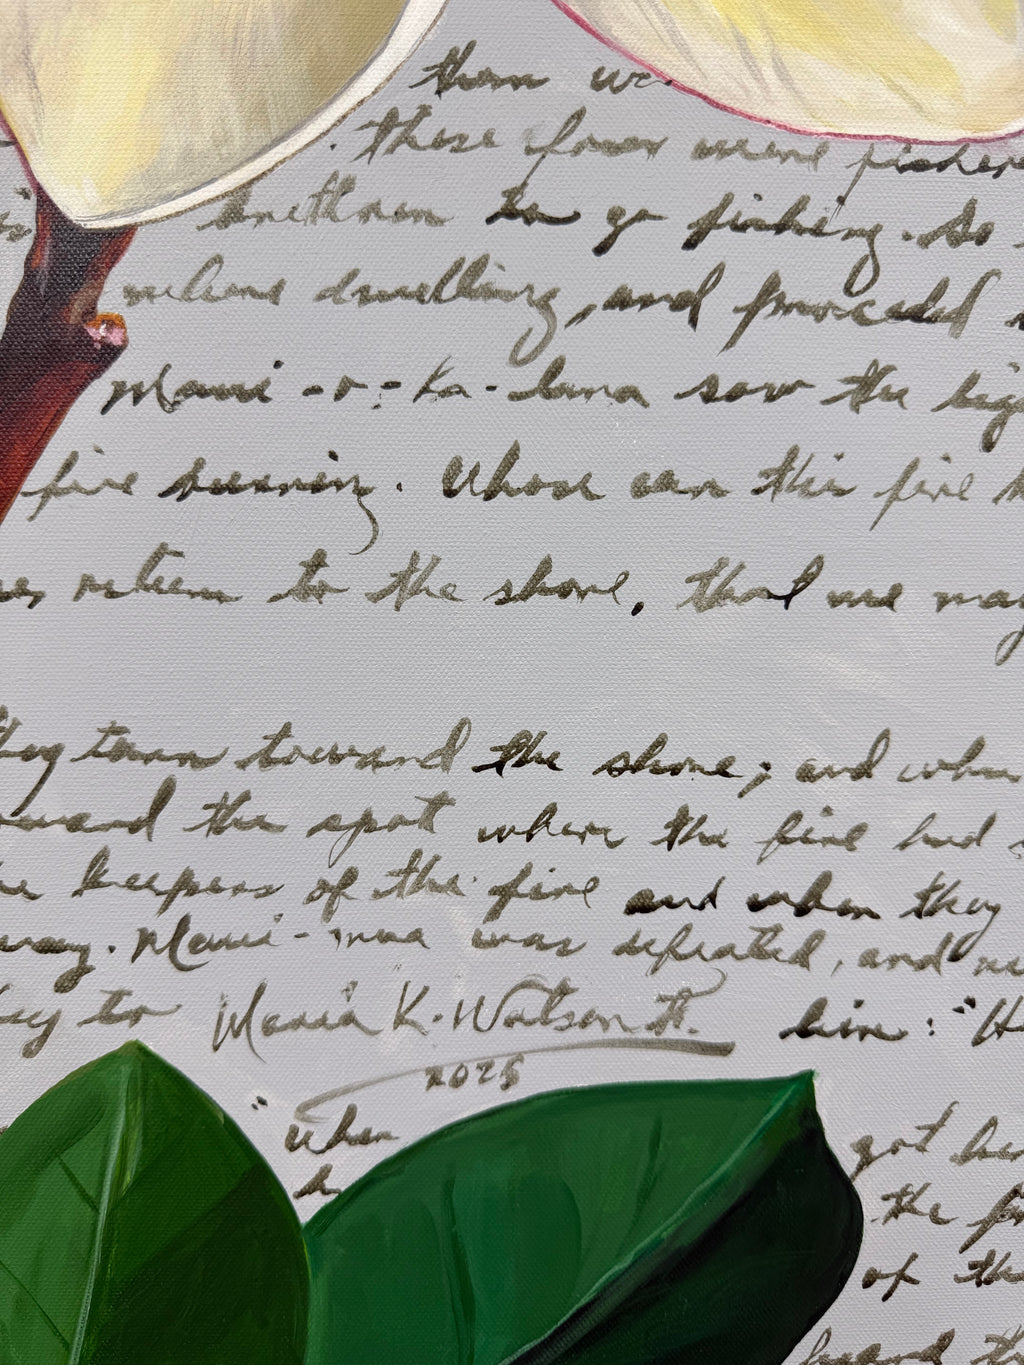 than we
these four were fishers
brethren to go fishing. So
dwelling, and proceeded
Maui-o-ka-lana saw the big
fire burning. Whose can this fire
return to the shore, that we may
they turn toward the shore; and when
the spot where the fire had
keepers of the fire and when they
Maui-mua was defeated, and
to Maria K. Watson him: "H
2025
"When got
the
of the